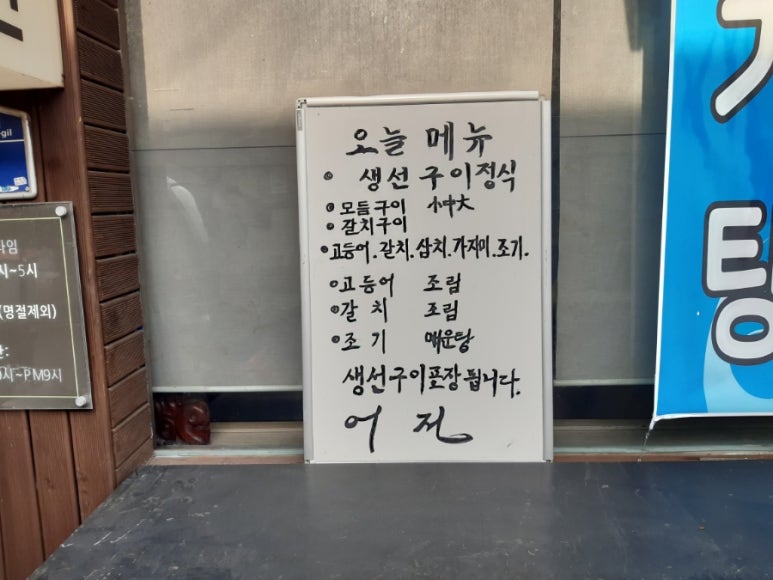 오늘 메뉴
• 생선구이정식
• 모듬구이 小中大
• 갈치구이
• 고등어.갈치.삼치.가자미.조기.
• 고등어 조림
• 갈치 조림
• 조기 매운탕
생선구이포장됩니다.
어전
gil
타임
시~5시
(명절제외)
시~PM9시
탕